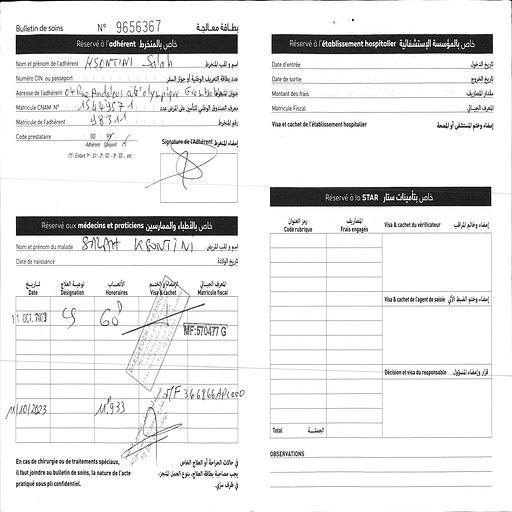 Bulletin de soins N° 9656367 بطاقة معالجة
Réservé à l'adhérent خاص بالمنخرط
Nom et prénom de l'adhérent KSONTINI Salah اسم و لقب المنخرط
Numéro CIN ou passeport عدد بطاقة التعريف الوطنية أو جواز السفر
Adresse de l'adhérent عنوان المنخرط
Matricule CNAM N° معرف الصندوق الوطني للتأمين على المرض عدد
Matricule de l'adhérent 98311 رقم المنخرط
Code prestataire 00 99
Adhérent Conjoint
Signature de l'Adhérent إمضاء المنخرط
(*) : Enfant 1er : 01 - 2 : 02 - 3 : 03 ... etc
Réservé aux médecins et praticiens خاص بالأطباء والممارسين
Nom et prénom du malade SARAH KSONTINI اسم و لقب المريض
Date de naissance تاريخ الولادة
تاريخ نوعية العلاج الأتعاب الإمضاء والختم المعرف الجبائي
Date Désignation Honoraires Visa & cachet Matricule fiscal
11 OCT. 2023 60D
MF:570477 G
11/10/2023 11D933
En cas de chirurgie ou de traitements spéciaux,
il faut joindre au bulletin de soins, la nature de l'acte
pratiqué sous pli confidentiel.
في حالات الجراحة أو العلاج الخاص
يجب مصاحبة بطاقة العلاج، بنوع العمل المنجز،
في ظرف سري.
Réservé à l'établissement hospitalier خاص بالمؤسسة الإستشفائية
Date d'entrée تاريخ الدخول
Date de sortie تاريخ الخروج
Montant des frais مقدار المصاريف
Matricule Fiscal المعرف الجبائي
Visa et cachet de l'établissement hospitalier إمضاء وختم المستشفى أو المصحة
Réservé à la STAR خاص بتأمينات ستار
رمز العنوان المصاريف
Code rubrique Frais engagés
Visa & cachet du vérificateur إمضاء وختم المراقب
Visa & cachet de l'agent de saisie
Décision et visa du responsable قرار وإمضاء المسؤول
Total الجملة
OBSERVATIONS